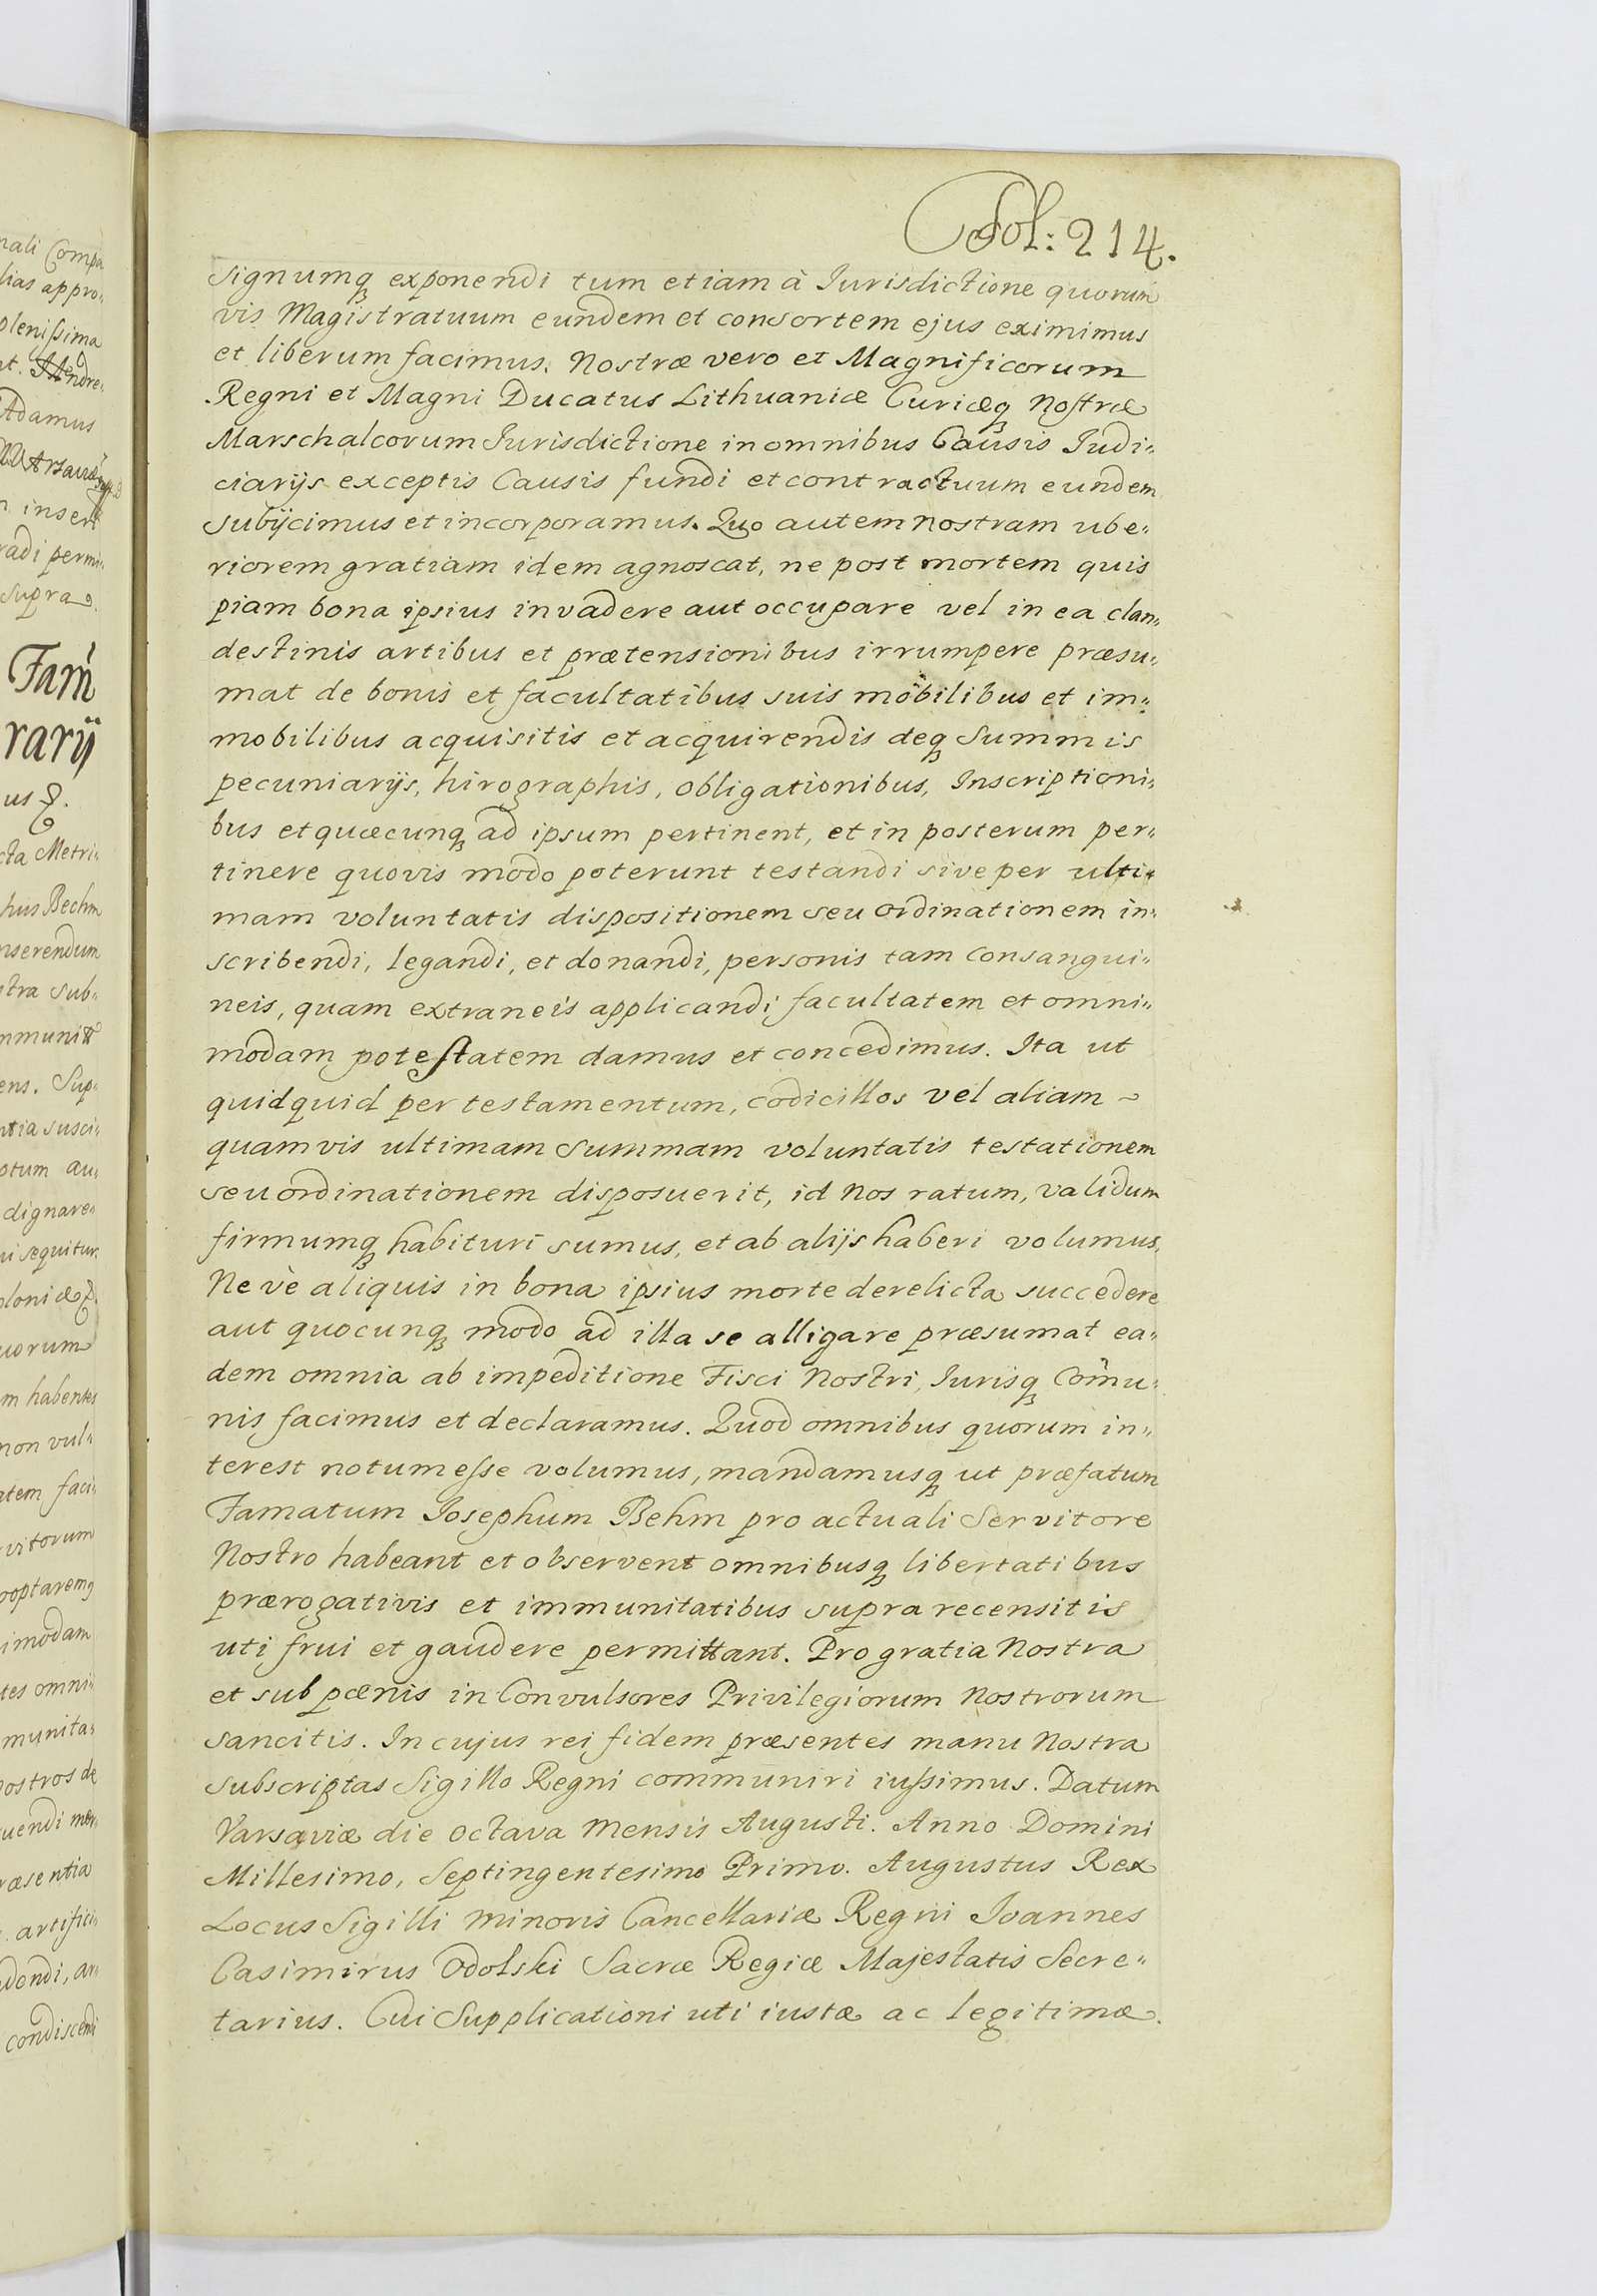 Fol: 214.
signumq exponendi tum etiam à Jurisdictione quorum
vis Magistratuum eundem et consortem ejus eximimus
et liberum facimus. Nostræ vero et Magnificorum
Regni et Magni Ducatus Lithuaniæ Curiæq Nostræ
Marschalcorum Jurisdictione in omnibus Causis Judi„
ciarijs exceptis Causis fundi et contractuum eundem
subijcimus et incorporamus. Quo autem nostram ube„
riorem gratiam idem agnoscat, ne post mortem quis
piam bona ipsius invadere aut occupare vel in ea clan„
destinis artibus et prætensionibus irrumpere præsu„
mat de bonis et facultatibus suis mobilibus et im„
mobilibus acquisitis et acquirendis deq summis
pecuniarijs, hirographis, obligationibus, Inscriptioni„
bus et quæcunq ad ipsum pertinent, et in posterum per„
tinere quovis modo poterunt testandi sive per ulti„
mam voluntatis dispositionem seu ordinationem in„
scribendi, legandi, et donandi, personis tam consangui„
neis, quam extraneis applicandi facultatem et omni„
modam potestatem damus et concedimus. Ita ut
quidquid per testamentum, codicillos vel aliam ~
quamvis ultimam summam voluntatis testationem
seu ordinationem disposuerit, id Nos ratum, validum
firmumq habituri sumus, et ab alijs haberi volumus.
Ne vè aliquis in bona ipsius morte derelicta succedere
aut quocunq modo ad illa se alligare præsumat ea„
dem omnia ab impeditione Fisci Nostri, Jurisq Com̃u„
nis facimus et declaramus. Quod omnibus quorum in„
terest notum esse volumus, mandamusq ut præfatum
Famatum Josephum Behm pro actuali Servitore
Nostro habeant et observent omnibusq libertatibus
prærogativis et immunitatibus supra recensitis
uti frui et gaudere permittant. Pro gratia Nostra
et sub pœnis in Convulsores Privilegiorum Nostrorum
sancitis. In cujus rei fidem præsentes manu Nostra
subscriptas Sigillo Regni communiri iussimus. Datum
Varsaviæ die octava Mensis Augusti. Anno Domini
Millesimo, Septingentesimo Primo. Augustus Rex
Locus Sigilli minoris Cancellariæ Regni Joannes
Casimirus Odolski Sacræ Regiæ Majestatis Secre„
tarius. Cui Supplicationi uti iustæ ac legitimæ.